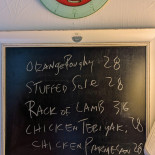 Orange Roughy - 28
STUFFED Sole 28
RACK OF LAMB 36
CHICKEN TERIYAKI 28
CHICKEN PARMESAN 28